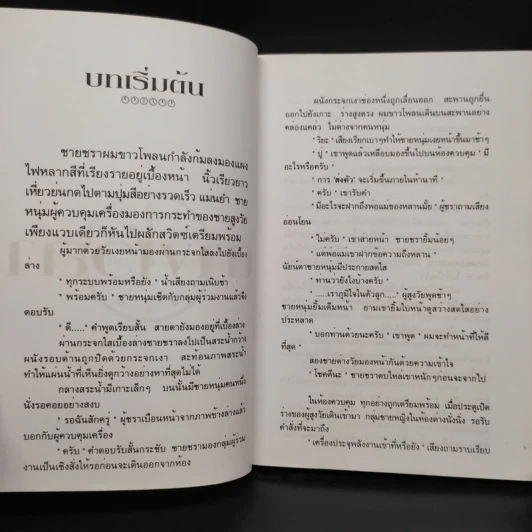 บทเริ่มต้น
ชายชราผมขาวโพลนกำลังก้มลงมองแผง
ไฟหลากสีที่เรียงรายอยู่เบื้องหน้า นิ้วเรียวยาว
เหี่ยวย่นกดไปตามปุ่มสีอย่างรวดเร็ว แม่นยำ ชาย
หนุ่มผู้ควบคุมเครื่องมองการกระทำของชายสูงวัย
เพียงแวบเดียวก็หันไปผลักสวิตซ์เตรียมพร้อม
ผู้มากด้วยวัยเงยหน้ามองผ่านกระจกใสลงไปยังเบื้อง
ล่าง
' ทุกระบบพร้อมหรือยัง ' น้ำเสียงถามเนิบช้า
' พร้อมครับ ' ชายหนุ่มเช็คกับกลุ่มผู้ร่วมงานแล้วจึง
ตอบรับ
' ดี.....' คำพูดเรียบสั้น สายตายังมองอยู่ที่เบื้องล่าง
ผ่านกระจกใสเบื้องล่างชายชราลงไปเป็นสระน้ำกว้าง
ผนังรอบด้านถูกปิดด้วยกระจกเงา สะท้อนภาพสระน้ำ
ทำให้แผ่นน้ำที่เห็นยิ่งดูกว้างอย่างหาที่สุดไม่ได้
กลางสระน้ำมีเกาะเล็กๆ บนนั้นมีชายหนุ่มคนหนึ่ง
นั่งรอคอยอย่างสงบ
' รอฉันสักครู่ ' ผู้ชราเบือนหน้าจากภาพข้างล่างแล้ว
บอกกับผู้ควบคุมเครื่อง
' ครับ ' คำตอบรับสั้นกระชับ ชายชรามองกลุ่มผู้ร่วม
งานเป็นเชิงสั่งให้รอก่อนจะเดินออกจากห้อง
ผนังกระจกเงาช่องหนึ่งถูกเลื่อนออก สะพานถูกยื่น
ออกไปยังเกาะ ร่างสูงตรง ผมขาวโพลนเดินบนสะพานอย่าง
คล่องแคล่ว ไม่ต่างจากคนหนุ่ม
' ริยะ ' เสียงเรียกเบาๆทำให้ชายหนุ่มเงยหน้าขึ้นมาช้าๆ
' ปู่ ' เขาพูดแล้วเหลือบมองขึ้นไปบนห้องควบคุม ' มี
อะไรหรือครับ '
' การ 'ส่งตัว' จะเริ่มขึ้นภายในห้านาที '
' ครับ ' เขารับคำ
' มีอะไรจะฝากถึงพ่อแม่ของหลานมั้ย ' ผู้ชราถามเสียง
อ่อนโยน
' ไม่ครับ ' เขาส่ายหน้า ชายชรายิ้มน้อยๆ
' แต่พ่อแม่เขาฝากข้อความถึงหลาน '
นัยน์ตาชายหนุ่มมีประกายสดใส
' ท่านว่ายังไงบ้างครับ '
' .....เราภูมิใจในตัวลูก.....' ผู้สูงวัยพูดช้าๆ
ชายหนุ่มยิ้มเต็มหน้า ยามเขายิ้มใบหน้าดูสว่างสดใสอย่าง
ประหลาด
' บอกท่านด้วยนะครับ ' เขาพูด ' ผมจะทำหน้าที่ให้ดี
ที่สุด '
สองชายต่างวัยมองหน้ากันด้วยความเข้าใจ
' โชคดีนะ ' ชายชราตบไหล่เขาหนักๆก่อนจะจากไป
ในห้องควบคุม ทุกอย่างถูกเตรียมพร้อม เมื่อประตูเปิด
ร่างของผู้สูงวัยเดินเข้ามา กลุ่มชายหญิงในห้องต่างนั่งนิ่ง รอรับ
คำสั่งที่จะมาถึง
' เครื่องประจุพลังงานเข้าที่หรือยัง ' เสียงถามราบเรียบ